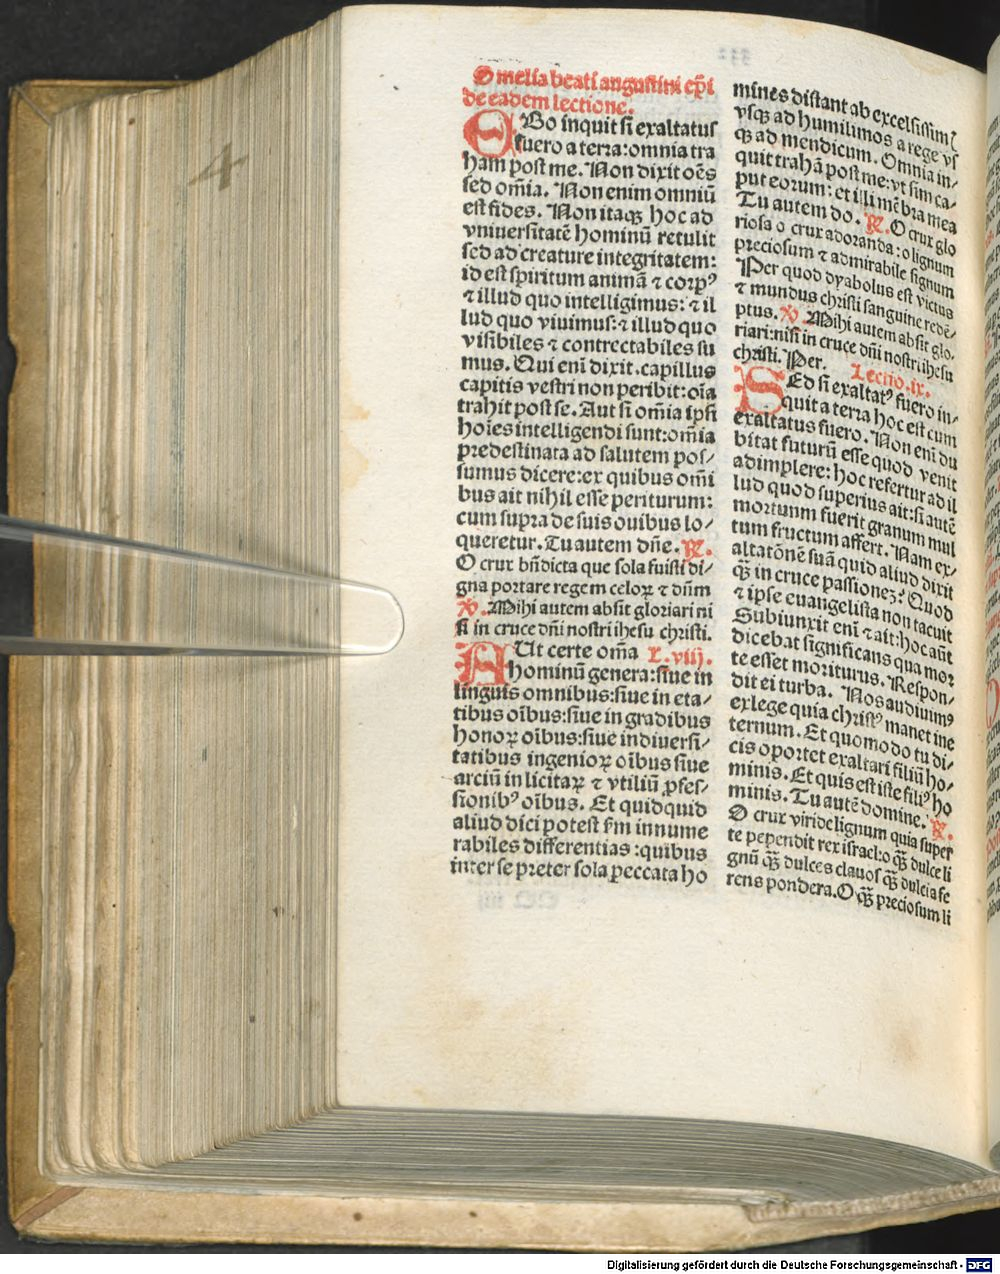 4
Omelia beati augustini ep̄i
de eadem lectione.
EGo inquit si exaltatus
fuero a terra: omnia tra
ham post me. Non dixit oēs
sed om̄ia. Non enim omniū
est fides. Non itaqꝫ hoc ad
vniuersitatē hominū retulit
sed ad creature integritatem:
id est spiritum animā ⁊ corpꝰ
⁊ illud quo intelligimus: ⁊ il
lud quo viuimus: ⁊ illud quo
visibiles ⁊ contrectabiles su
mus. Qui eni dixit. capillus
capitis vestri non peribit: oīa
trahit post se. Aut si om̄ia ipsi
hoīes intelligendi sunt: om̄ia
predestinata ad salutem pos/
sumus dicere: ex quibus omī
bus ait nihil esse periturum:
cum supra de suis ouibus lo/
queretur. Tu autem dn̄e. ℟.
O crux bn̄dicta que sola fuisti di/
gna portare regem celoꝝ ⁊ dn̄m
℣. Mihi autem absit gloriari ni
si in cruce dn̄i nostri ihesu christi.
AUt certe om̄a L. viij.
hominū genera: siue in
linguis omnibus: siue in eta/
tibus oībus: siue in gradibus
honoꝝ oībus: siue in diuersi/
tatibus ingenioꝝ oībus siue
arciū in licitaꝝ ⁊ vtiliū ꝓfes/
sionibꝰ oībus. Et quidquid
aliud dici potest scd̄m innume
rabiles differentias: quibus
inter se preter sola peccata ho
mines distant ab excelsissimis
vsqꝫ ad humilimos a rege vs
qꝫ ad mendicum. Omnia in/
quit trahā post me: vt sim ca/
put eorum: et illi mēbra mea
Tu autem do. ℟. O crux glo
riosa o crux adoranda: o lignum
preciosum ⁊ admirabile signum
Per quod dyabolus est victus
⁊ mundus christi sanguine redē/
ptus. ℣. Mihi autem absit glo.
riari: nisi in cruce dn̄i nostri ihesu
christi. Per. Lectio. ix.
SEd si exaltatꝰ fuero in/
quit a terra hoc est cum
exaltatus fuero. Non eni du
bitat futurū esse quod venit
adimplere: hoc refertur ad il
lud quod superius ait: si autē
mortuum fuerit granum mul
tum fructum affert. Nam ex/
altatōnē suā quid aliud dixit
qꝫ in cruce passionez? Quod
⁊ ipse euangelista non tacuit
Subiunxit eni ⁊ ait: hoc aūt
dicebat significans qua mor
te esset moriturus. Respon/
dit ei turba. Nos audiuimꝰ
ex lege quia christꝰ manet in e
ternum. Et quomodo tu di/
cis oportet exaltari filiū ho/
minis. Et quis est iste filiꝰ ho
minis. Tu autē domine. ℟.
O crux viride lignum quia super
te pependit rex israel: o qꝫ dulce li
gnū qꝫ dulces clauos qꝫ dulcia fe
rens pondera. O qꝫ preciosum li
Digitalisierung gefördert durch die Deutsche Forschungsgemeinschaft - DFG